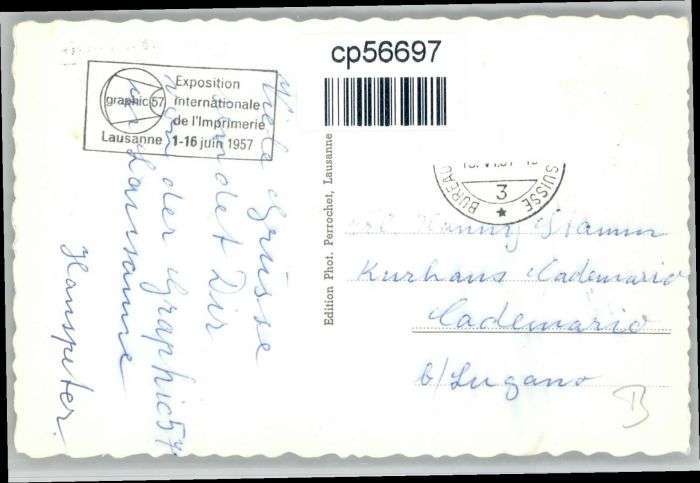 cp56697
graphic 57
Exposition
internationale
de l'Imprimerie
Lausanne 1-16 juin 1957
Viele Grüsse
sendet Dir
von der Graphic 57
in Lausanne
Hanspeter.
Edition Phot. Perrochet, Lausanne
BUREAU SUISSE
3
Hanny Stamm
Kurhaus Cademario
Cademario
b/Lugano
B